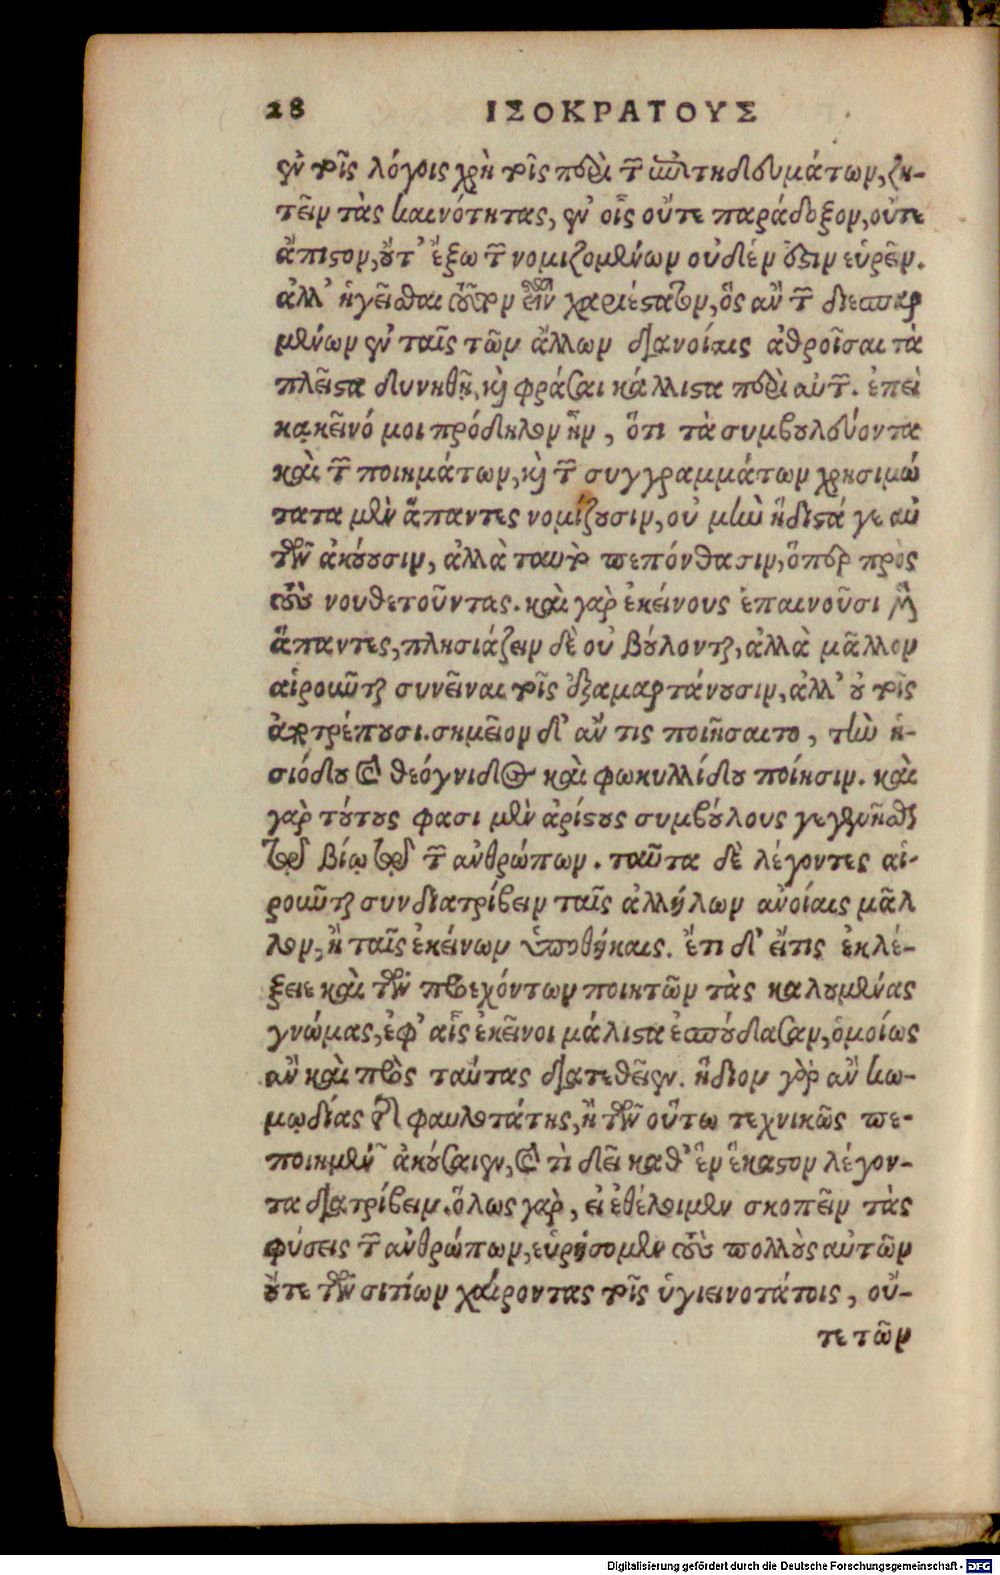 28 ΙΣΟΚΡΑΤΟΥΣ
ἐν τοῖς λόγοις χρὴ τοῖς περὶ τῶν ἐπιτηδευμάτων, ζη-
τεῖν τὰς καινότητας, ἐν οἷς οὔτε παράδοξον, οὔτε
ἄπιστον, οὔτ' ἔξω τῶν νομιζομένων οὐδέν ἔξεστιν εὑρεῖν.
ἀλλ' ἡγεῖσθαι τοῦτον εἶναι χαριέστατον, ὃς ἂν τῶν διεσπαρ
μένων ἐν ταῖς τῶν ἄλλων διανοίαις ἀθροῖσαι τὰ
πλεῖστα δυνηθῇ, καὶ φράσαι κάλλιστα περὶ αὐτῶν. ἐπεὶ
κᾀκεῖνό μοι πρόδηλον ἦν, ὅτι τὰ συμβουλεύοντα
καὶ τῶν ποιημάτων, καὶ τῶν συγγραμμάτων χρησιμώ
τατα μὲν ἅπαντες νομίζουσιν, οὐ μὴν ἥδιστά γε αὐ
τῶν ἀκούουσιν, ἀλλὰ ταυτὸ πεπόνθασιν, ὅπερ πρὸς
τοὺς νουθετοῦντας. καὶ γὰρ ἐκείνους ἐπαινοῦσι μὲν
ἅπαντες, πλησιάζειν δὲ οὐ βούλονται, ἀλλὰ μᾶλλον
αἱροῦνται συνεῖναι τοῖς ἐξαμαρτάνουσιν, ἀλλ' οὐ τοῖς
ἀποτρέπουσι. σημεῖον δ' ἄν τις ποιήσαιτο, τὴν ἡ-
σιόδου καὶ θεόγνιδος καὶ φωκυλλίδου ποίησιν. καὶ
γὰρ τούτους φασι μὲν ἀρίστους συμβούλους γεγενῆσθαι
τῷ βίῳ τῷ τῶν ἀνθρώπων. ταῦτα δὲ λέγοντες αἱ-
ροῦνται συνδιατρίβειν ταῖς ἀλλήλων ἀνοίαις μᾶλ
λον, ἢ ταῖς ἐκείνων ὑποθήκαις. ἔτι δ' εἴτις ἐκλέ-
ξειε καὶ τῶν προεχόντων ποιητῶν τὰς καλουμένας
γνώμας, ἐφ' αἷς ἐκεῖνοι μάλιστα ἐσπούδασαν, ὁμοίως
ἂν καὶ πρὸς ταύτας διατεθεῖεν. ἥδιον γὰρ ἂν κω-
μῳδίας τῆς φαυλοτάτης, ἢ τῶν οὕτω τεχνικῶς πε-
ποιημένων ἀκούσαιεν, καὶ τὶ δεῖ καθ' ἓν ἕκαστον λέγον-
τα διατρίβειν. ὅλως γὰρ, εἰ ἐθέλοιμεν σκοπεῖν τὰς
φύσεις τῶν ἀνθρώπων, εὑρήσομεν τοὺς πολλοὺς αὐτῶν
οὔτε τῶν σιτίων χαίροντας τοῖς ὑγιεινοτάτοις, οὔ-
τε τῶν
Digitalisierung gefördert durch die Deutsche Forschungsgemeinschaft - DFG